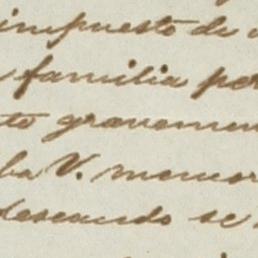 impuesto de
familia per
to gravamen
ba V. memor
deseando se